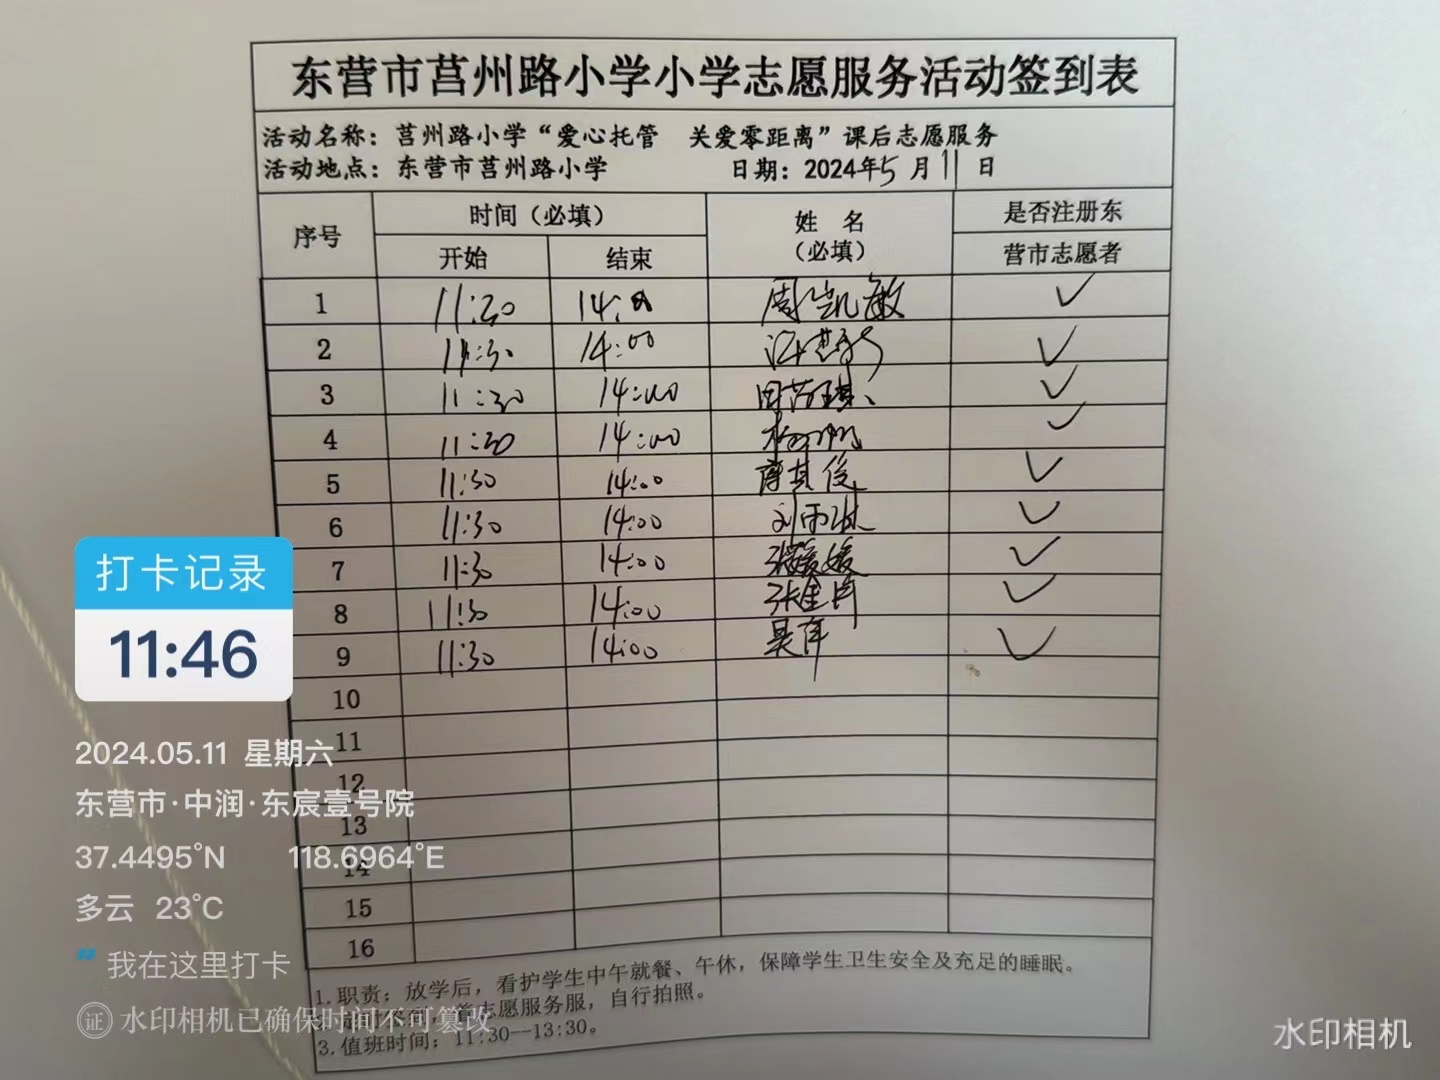 东营市莒州路小学小学志愿服务活动签到表
活动名称：莒州路小学“爱心托管 关爱零距离”课后志愿服务
活动地点：东营市莒州路小学 日期：2024年5月11日
序号 时间（必填） 姓 名（必填） 是否注册东营市志愿者
开始 结束
1 11:30 14:00 周凯敏 ✓
2 11:30 14:00 ✓
3 11:30 14:00 ✓
4 11:30 14:00 杨帆 ✓
5 11:30 14:00 ✓
6 11:30 14:00 刘雨淋 ✓
7 11:30 14:00 张媛媛 ✓
8 11:30 14:00 ✓
9 11:30 14:00 ✓
10
11
12
13
14
15
16
1.职责：放学后，看护学生中午就餐、午休，保障学生卫生安全及充足的睡眠。
志愿服务服，自行拍照。
3.值班时间：11:30—13:30。
打卡记录
11:46
2024.05.11 星期六
东营市·中润·东宸壹号院
37.4495°N 118.6964°E
多云 23℃
我在这里打卡
证 水印相机已确保时间不可篡改
水印相机